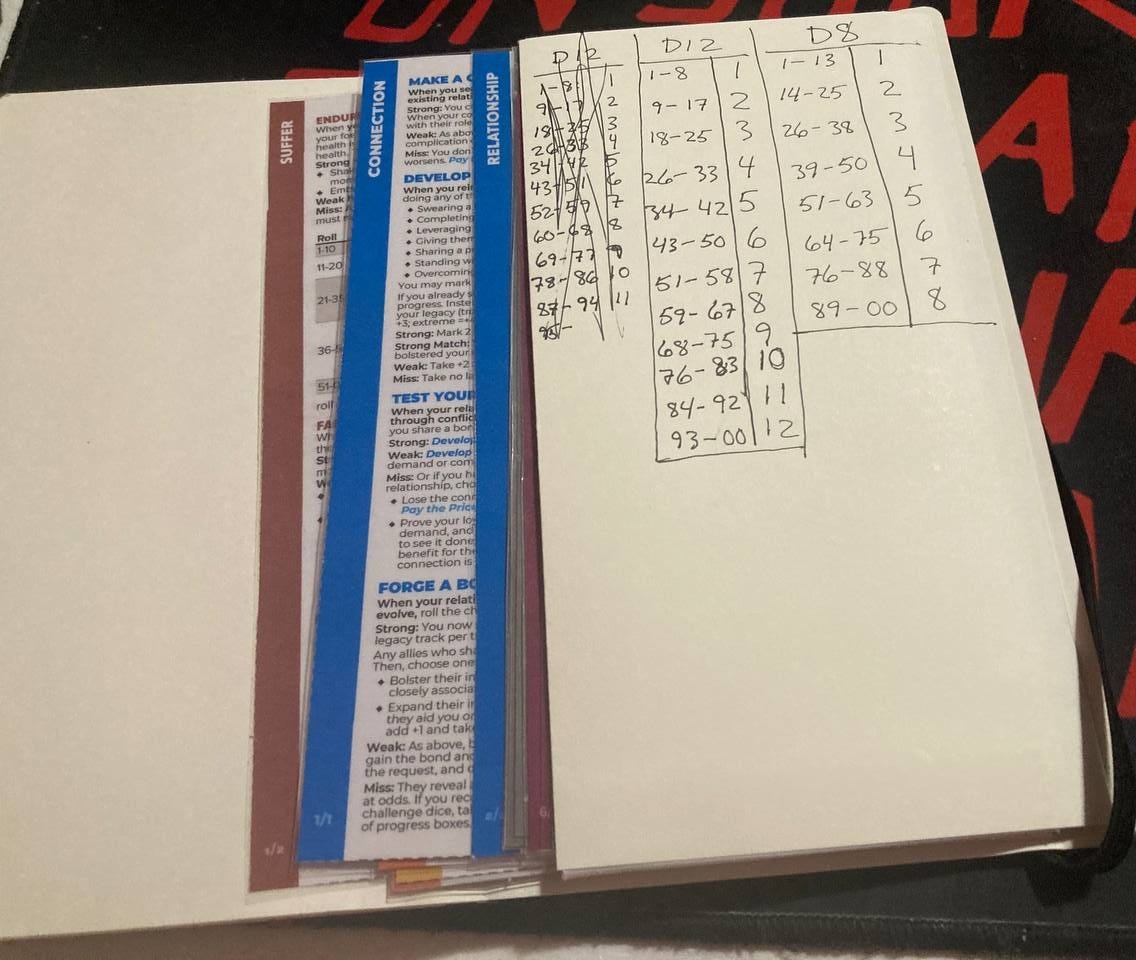 SUFFER
ENDUR
When y
your for
health i
health.
Strong
Weak
Miss:
must
Roll
1-10
11-20
21-3
36-
51-
roll
FA
1/2
CONNECTION
MAKE A C
When you se
existing relati
Strong: You c
When your co
with their role
Weak: As abo
complication
Miss: You don
worsens. Pay
DEVELOP
When you rei
doing any of t
◆ Swearing a
◆ Completing
◆ Leveraging
◆ Giving them
◆ Sharing a p
◆ Standing w
◆ Overcoming
You may mark
If you already s
progress. Inste
your legacy (tr
+3; extreme =+
Strong: Mark 2
Strong Match:
bolstered your
Weak: Take +2
Miss: Take no la
TEST YOUR
When your rela
through conflic
you share a bon
Strong: Develop
Weak: Develop
demand or com
Miss: Or if you h
relationship, cho
◆ Lose the conn
Pay the Price
◆ Prove your lo
demand, and
to see it done
benefit for the
connection is
FORGE A BO
When your relati
evolve, roll the ch
Strong: You now
legacy track per t
Any allies who sha
Then, choose one
◆ Bolster their in
closely associa
◆ Expand their in
they aid you or
add +1 and take
Weak: As above, b
gain the bond and
the request, and
Miss: They reveal
at odds. If you rec
challenge dice, ta
of progress boxes.
1/1
RELATIONSHIP
2/
6
D12
1-8 1
9-17 2
18-25 3
26-33 4
34-42 5
43-51 6
52-59 7
60-68 8
69-77 9
78-86 10
87-94 11
95-
D12
1-8 1
9-17 2
18-25 3
26-33 4
34-42 5
43-50 6
51-58 7
59-67 8
68-75 9
76-83 10
84-92 11
93-00 12
D8
1-13 1
14-25 2
26-38 3
39-50 4
51-63 5
64-75 6
76-88 7
89-00 8